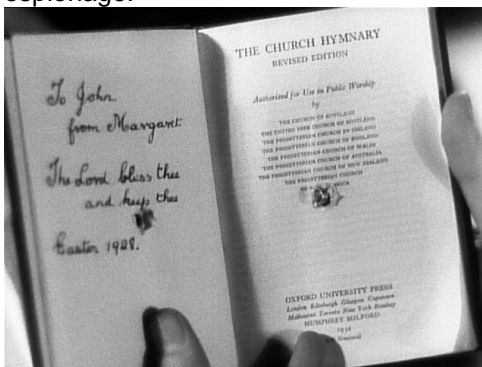 espionage.
To John
from Margaret
The Lord bless thee
and keep thee
Easter 1928.
THE CHURCH HYMNARY
REVISED EDITION
Authorized for Use in Public Worship
by
THE CHURCH OF SCOTLAND
THE UNITED FREE CHURCH OF SCOTLAND
THE PRESBYTERIAN CHURCH IN IRELAND
THE PRESBYTERIAN CHURCH OF ENGLAND
THE PRESBYTERIAN CHURCH OF WALES
THE PRESBYTERIAN CHURCH OF AUSTRALIA
THE PRESBYTERIAN CHURCH OF NEW ZEALAND
THE PRESBYTERIAN CHURCH
OXFORD UNIVERSITY PRESS
London Edinburgh Glasgow Capetown
Melbourne Toronto New York Bombay
HUMPHREY MILFORD